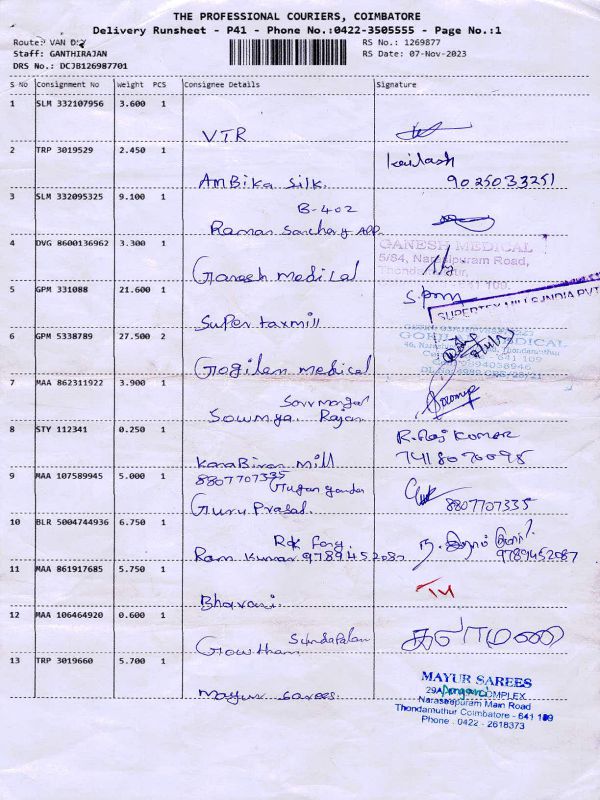 THE PROFESSIONAL COURIERS, COIMBATORE
Delivery Runsheet - P41 - Phone No.:0422-3505555 - Page No.:1
Route: VAN DLY
RS No.: 1269877
Staff: GANTHIRAJAN
RS Date: 07-Nov-2023
DRS No.: DCJB126987701
S No Consignment No Weight PCS Consignee Details Signature
1 SLM 332107956 3.600 1
VTR
2 TRP 3019529 2.450 1
Kailash
9025033251
AmBika Silk.
3 SLM 332095325 9.100 1
B-402
Raman
4 DVG 8600136962 3.300 1
GANESH MEDICAL
5/84, Narasipuram Road,
Ganesh medical
5 GPM 331088 21.600 1
S.pm
SUPERTEX MILLS INDIA PVT
Super taxmill
6 GPM 5338789 27.500 2
GOKULAM MEDICAL
641 109
Gogilan medical
7 MAA 862311922 3.900 1
Sowmya Rajan
Sowmya
8 STY 112341 0.250 1
R. Raj Kumar
7418070098
mill
9 MAA 107589945 5.000 1
8807707335
8807707335
Guru Prasad.
10 BLR 5004744936 6.750 1
Ram Kumar 9789452087
9789452087
11 MAA 861917685 5.750 1
Bhavani
12 MAA 106464920 0.600 1
Gowtham
13 TRP 3019660 5.700 1
MAYUR SAREES
29A COMPLEX
Narasipuram Main Road
Thondamuthur Coimbatore - 641 109
Phone : 0422 - 2618373
mayur sarees.